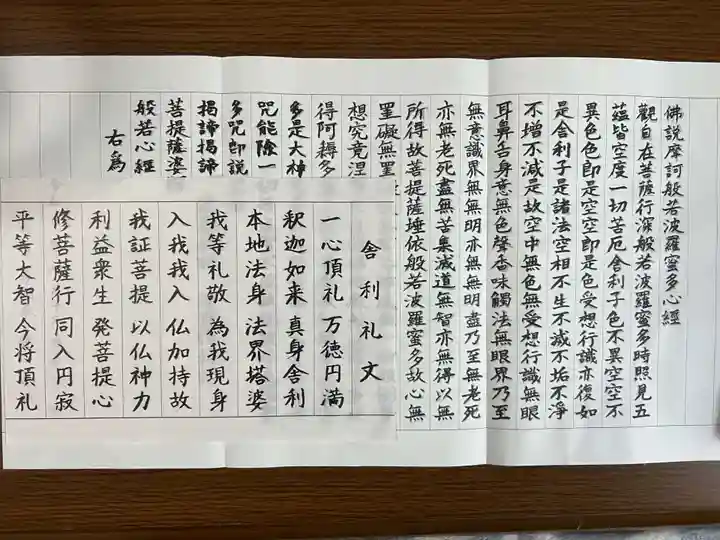 佛説摩訶般若波羅蜜多心經
觀自在菩薩行深般若波羅蜜多時照見五
蘊皆空度一切苦厄舍利子色不異空空不
異色色即是空空即是色受想行識亦復如
是舍利子是諸法空相不生不滅不垢不淨
不増不減是故空中無色無受想行識無眼
耳鼻舌身意無色聲香味觸法無眼界乃至
無意識界無無明亦無無明盡乃至無老死
亦無老死盡無苦集滅道無智亦無得以無
所得故菩提薩埵依般若波羅蜜多故心無
罣礙無罣
想究竟涅
得阿耨多
多是大神
咒能除一
多咒即説
揭諦揭諦
菩提薩婆
般若心經
右為
舎利礼文
一心頂礼 万徳円満
釈迦如来 真身舎利
本地法身 法界塔婆
我等礼敬 為我現身
入我我入 仏加持故
我証菩提 以仏神力
利益衆生 発菩提心
修菩薩行 同入円寂
平等大智 今将頂礼